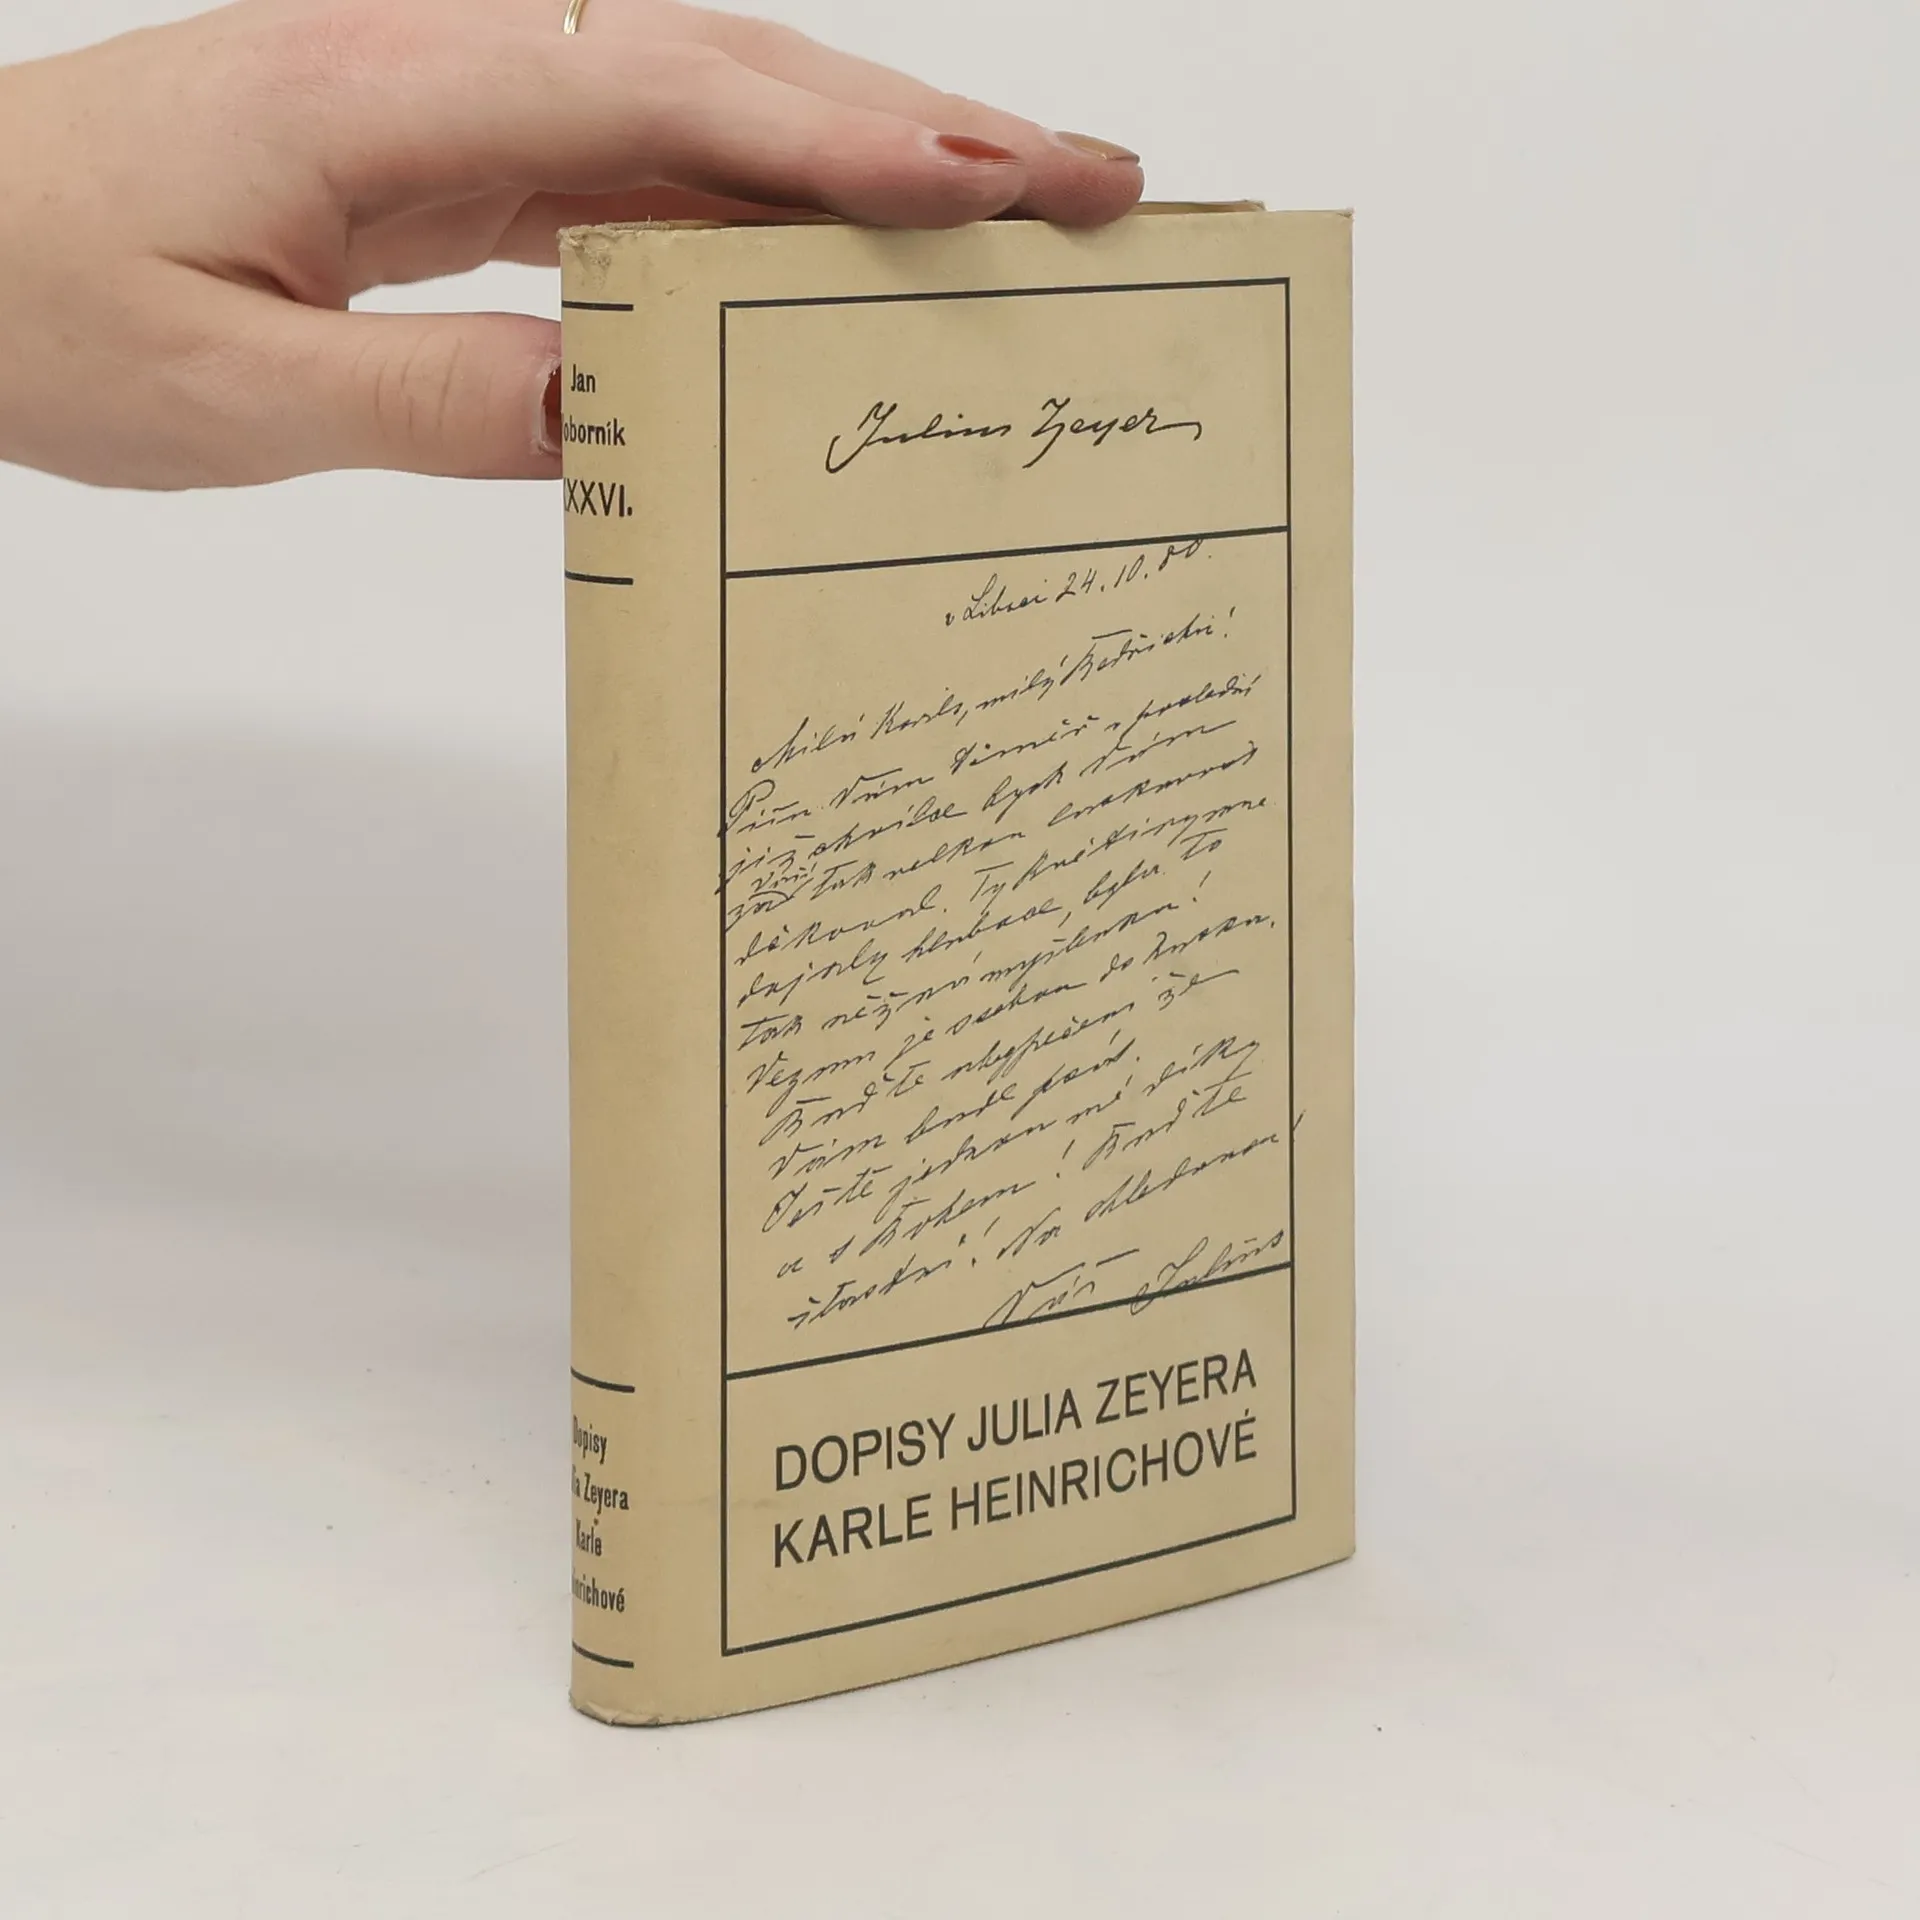 Jan
oborník
XXVI.
Dopisy
ia Zeyera
Karle
inrichové
Julius Zeyer
v Liboci 24. 10. 80.
Milá Karlo, milý Bedřichu!
Píši Vám téměř v poslední
již chvilce bych Vám
za Vaši tak velkou laskavost
děkoval. Ty květiny mne
dojaly hluboce, byla to
tak něžná myšlenka!
Vezmu je sebou do Ruska.
Buďte ubezpečeni že
Vám budu psát.
Ještě jednou mé díky
a s Bohem! Buďte
šťastni! Na shledanou!
Váš Julius
DOPISY JULIA ZEYERA
KARLE HEINRICHOVÉ